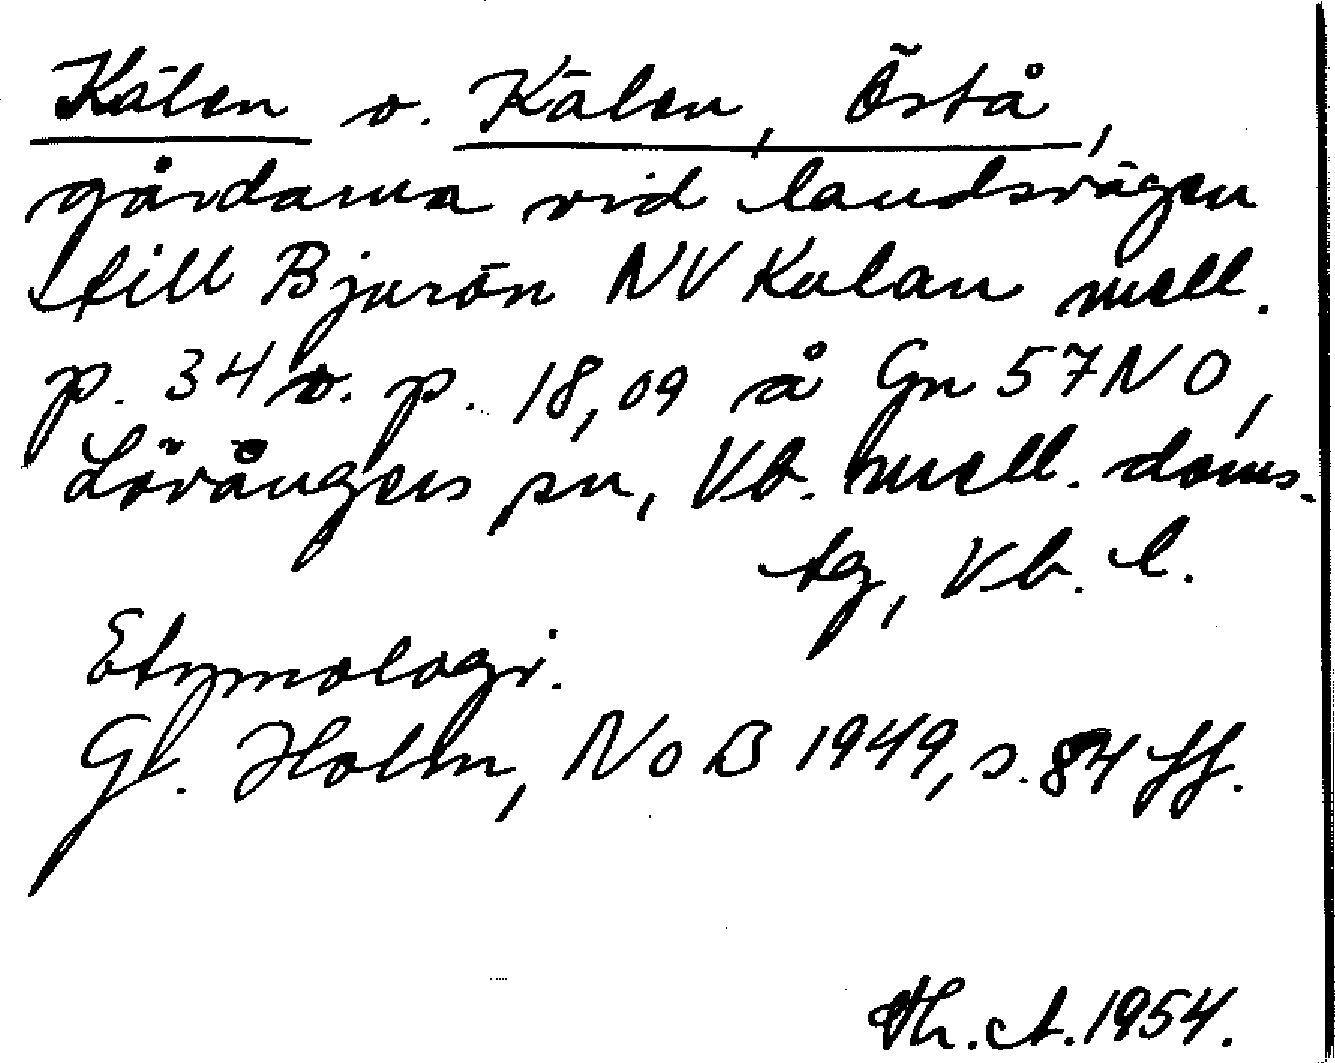 Kälen o. Kälen, Östå,
gårdarna vid landsvägen
till Bjurön NV Kalan mell.
p. 34 o. p. 18,09 å Gn 57 NO,
Lövångers sn, Vb. mell. doms.
tg, Vb. l.
Etymologi.
G. Holm, NoB 1949, s. 84 ff.
Th. A. 1954.